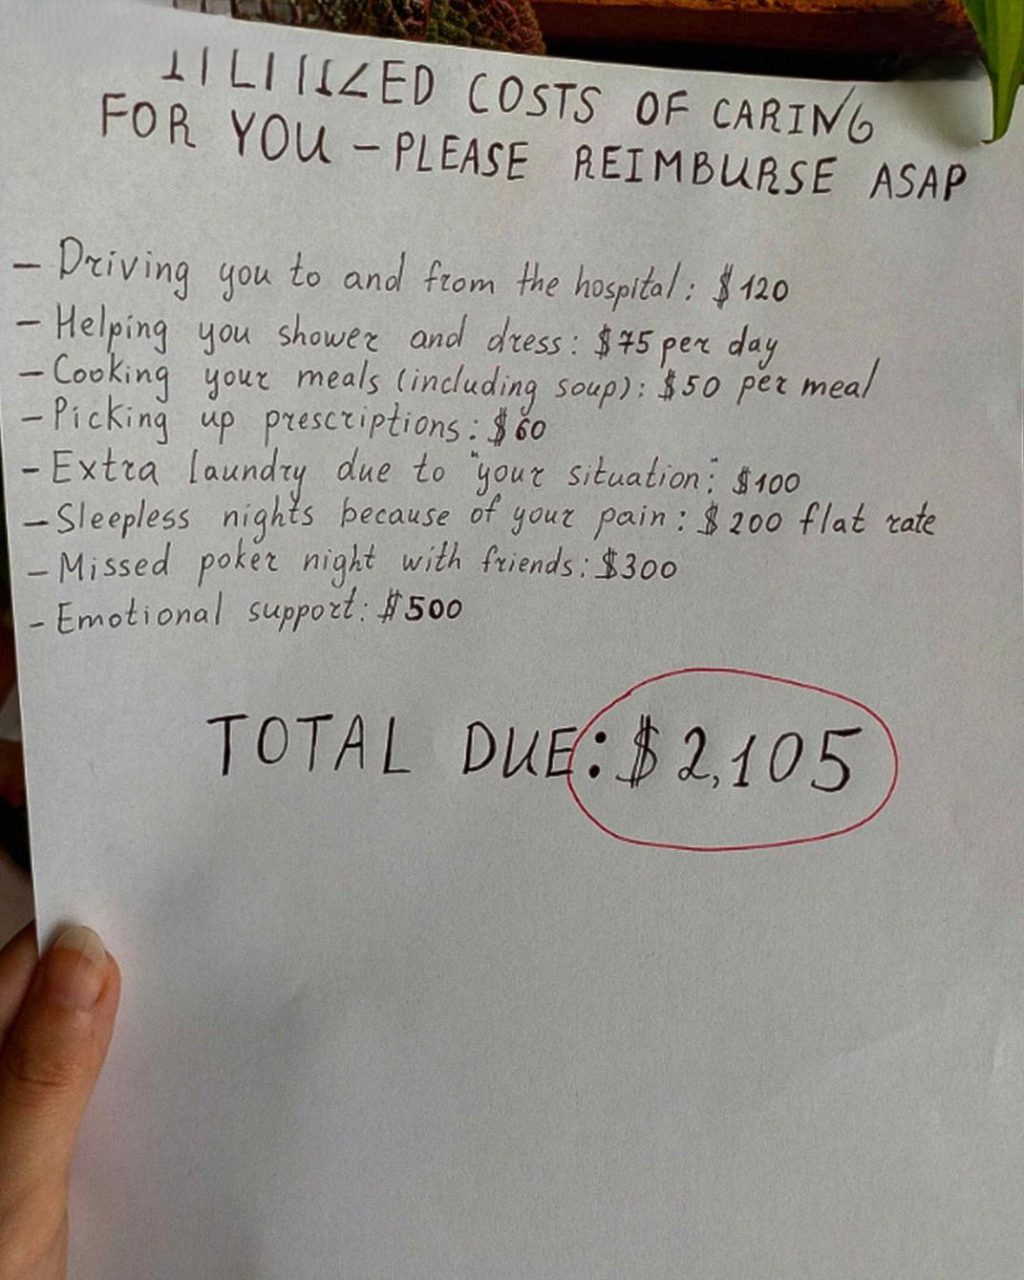 COSTS OF CARING
FOR YOU – PLEASE REIMBURSE ASAP
– Driving you to and from the hospital: $120
– Helping you shower and dress: $75 per day
– Cooking your meals (including soup): $50 per meal
– Picking up prescriptions: $60
– Extra laundry due to "your situation": $100
– Sleepless nights because of your pain: $200 flat rate
– Missed poker night with friends: $300
– Emotional support: $500
TOTAL DUE: $2,105